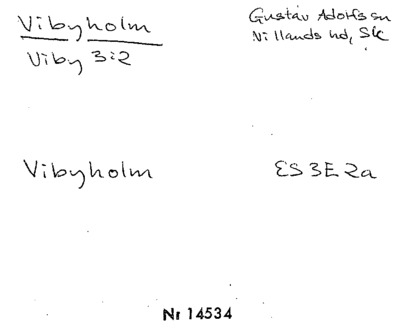 Vibyholm
Viby 3:2
Gustav Adolfs sn
Villands hd, Sk
Vibyholm
ES 3E 2a
Nr 14534